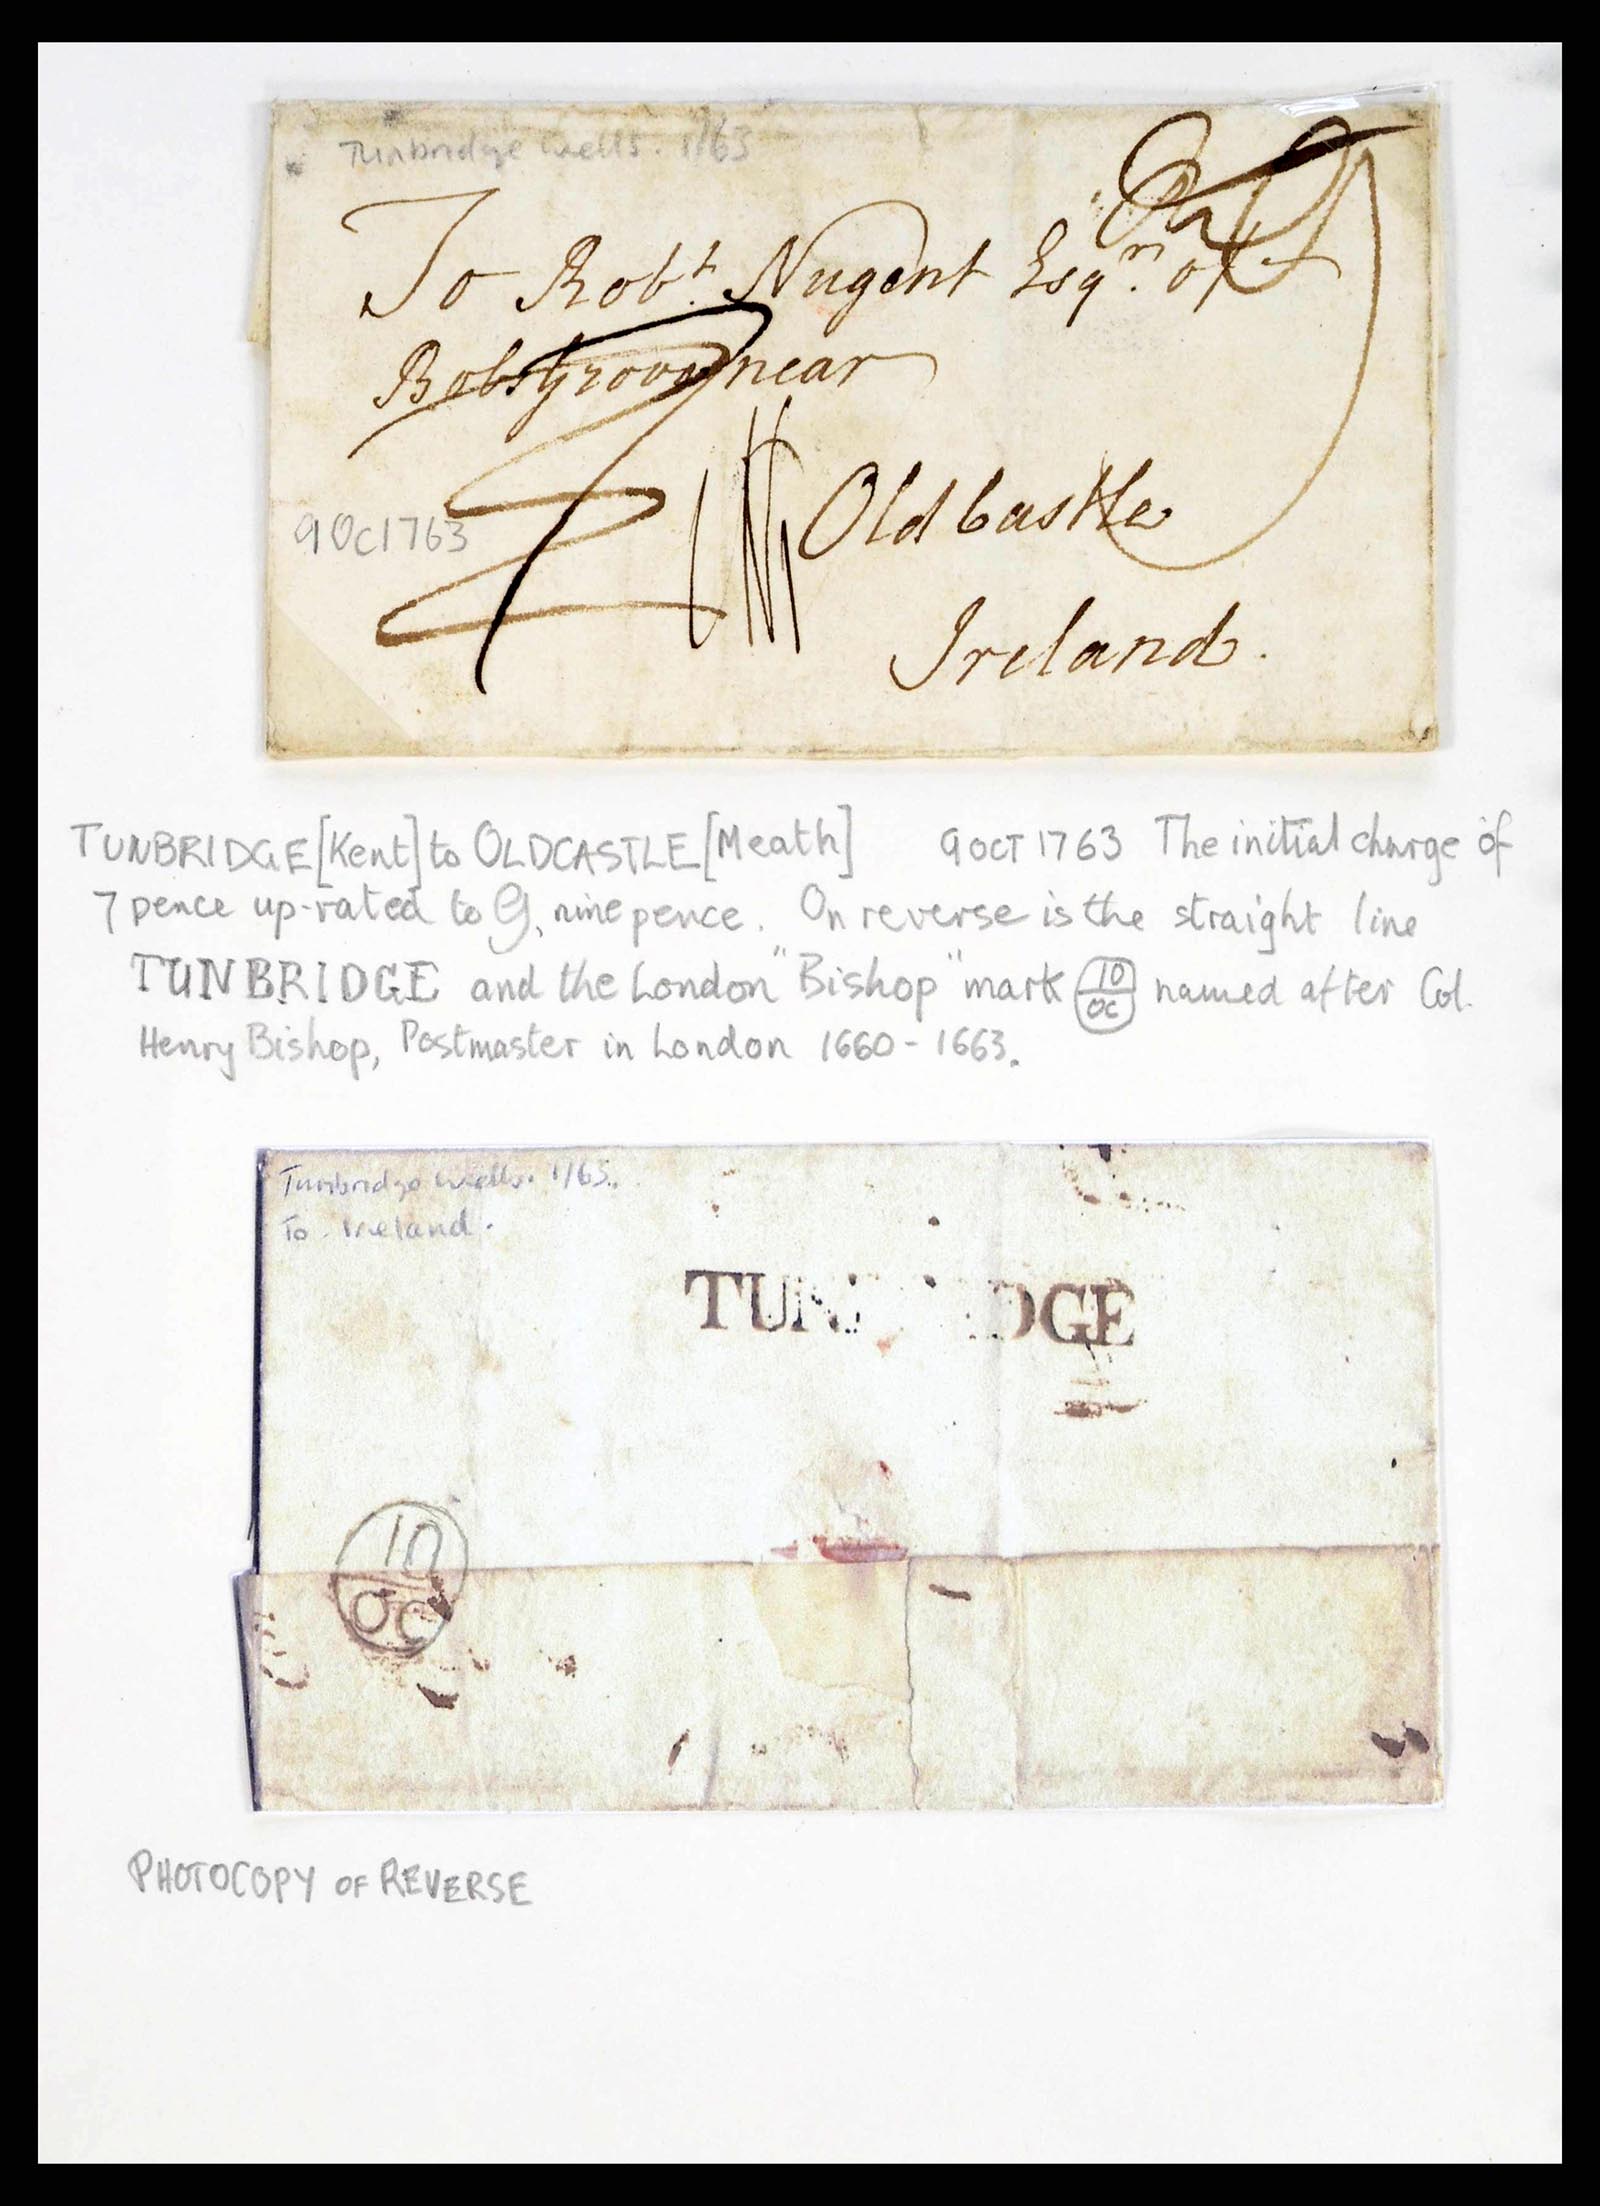 Tunbridge Wells. 1763
To Robt. Nugent Esqr. of
Bobsgrove near
9 Oc 1763
Old Castle
Ireland.
TUNBRIDGE [Kent] to OLDCASTLE [Meath] 9 OCT 1763 The initial charge of
7 pence up-rated to 9, nine pence. On reverse is the straight line
TUNBRIDGE and the London "Bishop" mark 10 OC named after Col.
Henry Bishop, Postmaster in London 1660 - 1663.
Tunbridge Wells. 1763.
To. Ireland.
TUN DGE
10
OC
PHOTOCOPY OF REVERSE